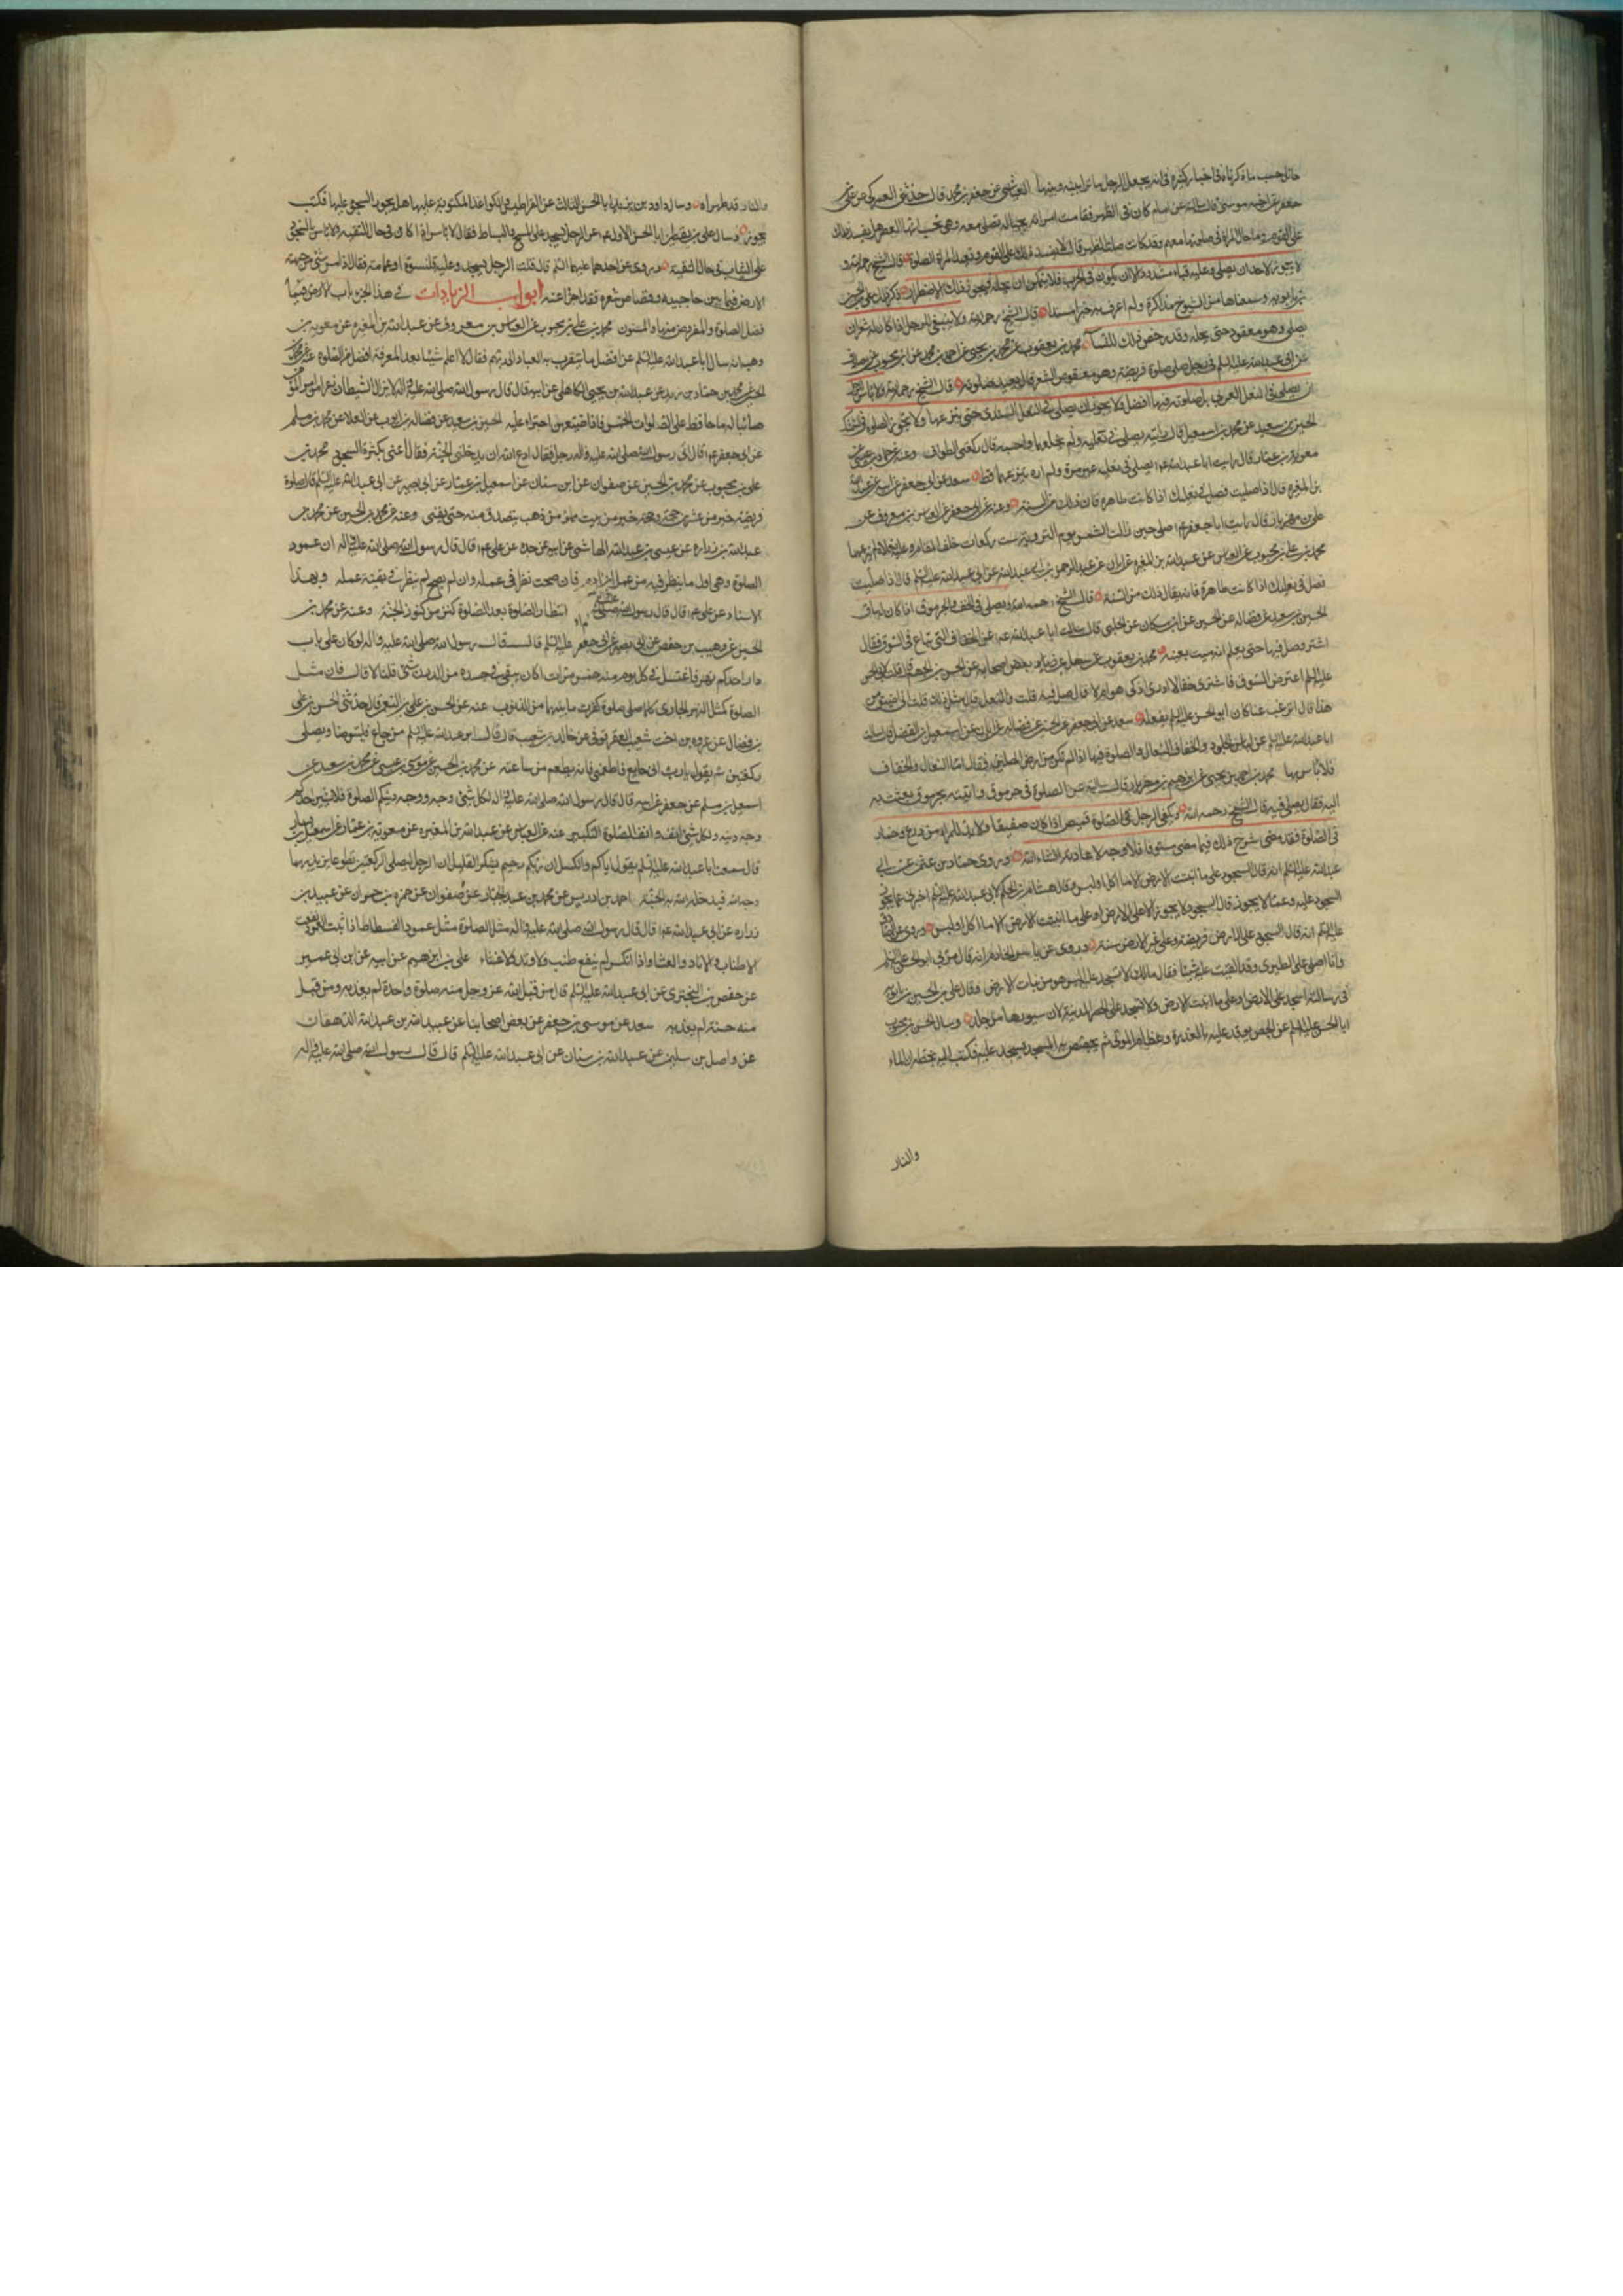 حائل حسب ما ذكرناه في اخبار كثيرة في انه يجعل الرجل ساترا بينه وبينها العياشي عن جعفر بن محمد قال حدثني العمركي عن علي بن
جعفر عن اخيه موسى قال سالته عن امام كان في الظهر فقامت امراة بحياله تصلي معه وهي تحسب انها العصر هل يفسد ذلك
على القوم وما حال المراة في صلوتها معهم وقد كانت صلت الظهر قال لا يفسد ذلك على القوم وتعيد المراة الصلوة قال الشيخ رحمه الله و
لا يجوز لاحد ان يصلي وعليه قباء مشدود الا ان يكون في الحرب فلا يتمكن ان يحله فيجوز ذلك للاضطرار ذكر ذلك علي بن الحسين
بن بابويه وسمعناها من الشيوخ مذاكرة ولم اعرف به خبرا مسندا قال الشيخ رحمه الله ولا ينبغي للرجل اذا كان له شعر ان
يصلي وهو معقود حتى يحله وقد رخص في ذلك للنساء محمد بن يعقوب عن محمد بن يحيى عن احمد بن محمد عن ابن محبوب عن مصادف
عن ابي عبد الله عليه السلم في رجل صلى صلوة فريضة وهو معقوص الشعر قال يعيد صلوته قال الشيخ رحمه الله ولا باس
ان يصلي في النعل العربي بل صلوته فيها افضل ولا يجوز ان يصلي في النعل السندي حتى ينزعها ولا تجوز الصلوة في
الحسين بن سعيد عن محمد بن اسمعيل قال رايته يصلي في نعليه ولم يخلعهما واحسبه قال ركعتي الطواف وعنه عن حماد بن عيسى عن
معوية بن عمار قال رايت ابا عبد الله ع يصلي في نعليه غير مرة ولم اره ينزعهما قط سعد عن ابي جعفر عن ابيه عن عبد الله
بن المغيرة قال اذا صليت فصل في نعليك اذا كانت طاهرة فان ذلك من السنة وعنه عن ابي جعفر عن العباس بن معروف عن
علي بن مهزيار قال رايت ابا جعفر ع صلى حين زالت الشمس يوم التروية ست ركعات خلف المقام وعليه نعلاه لم ينزعهما
محمد بن علي بن محبوب عن العباس عن عبد الله بن المغيرة عن ابان عن عبد الرحمن بن ابي عبد الله عن ابي عبد الله عليه السلم قال اذا صليت
فصل في نعليك اذا كانت طاهرة فانه يقال ذلك من السنة قال الشيخ رحمه الله ويصلي في الخف والجرموق اذا كان له ساق
الحسين بن سعيد عن فضالة عن الحسين عن ابن مسكان عن الحلبي قال سالت ابا عبد الله ع عن الخفاف التي تباع في السوق فقال
اشتر وصل فيها حتى تعلم انه ميت بعينه محمد بن يعقوب عن سهل بن زياد عن بعض اصحابه عن الحسن بن الجهم قال قلت لابي الحسن
عليه السلم اعترض السوق فاشتري خفا لا ادري اذكي هو ام لا قال صل فيه قلت والنعل قال مثل ذلك قلت اني اضيق من
هذا قال اترغب عما كان ابو الحسن عليه السلم يفعله سعد عن ابي جعفر عن الحسين عن فضالة عن ابان عن اسمعيل بن الفضل قال سالت
ابا عبد الله عليه السلم عن لباس الجلود والخفاف والنعال والصلوة فيها اذا لم تكن من ارض المصلين فقال اما النعال والخفاف
فلا باس بها محمد بن احمد بن يحيى عن ابراهيم بن مهزيار قال سالته عن الصلوة في جرموق واتيته بجرموق بعثت به
اليه فقال يصلي فيه قال الشيخ رحمه الله ويكفي الرجل في الصلوة قميص اذا كان صفيقا ولا بد للمراة من درع وخمار
في الصلوة فقد مضى شرح ذلك فيما مضى مستوفا فلا وجه لاعادته انشاء الله وروى حماد بن عثمن عن ابي
عبد الله عليه السلم انه قال السجود على ما انبتت الارض الا ما اكل او لبس وقال هشام بن الحكم لابي عبد الله عليه السلم اخبرني عما يجوز
السجود عليه وعما لا يجوز قال السجود لا يجوز الا على الارض او على ما انبتت الارض الا ما اكل او لبس وروي عن الصادق
عليه السلم انه قال السجود على الارض فريضة وعلى غير الارض سنة وروى عن ياسر الخادم انه قال مر بي ابو الحسن عليه السلم
وانا اصلي على الطبري وقد القيت عليه شيئا فقال مالك لا تسجد عليه اليس هو من نبات الارض وقال علي بن الحسين بن بابويه
في رسالته اسجد على الارض او على ما انبتت الارض ولا تسجد على الحصر المدنية لان سيورها من جلد وسال الحسن بن محبوب
ابا الحسن عليه السلم عن الجص يوقد عليه بالعذرة وعظام الموتى ثم يجصص به المسجد ايسجد عليه فكتب اليه بخطه ان الماء
والنار
والنار قد طهراه وسال داود بن يزيد ابا الحسن الثالث عن القراطيس والكواغذ المكتوبة عليها هل يجوز السجود عليها فكتب
يجوز وسال علي بن يقطين ابا الحسن الاول ع عن الرجل يسجد على المسح والبساط فقال لا باس اذا كان في حال التقية ولا باس بالسجود
على الثياب في حال التقية وروى عن احدهما عليهما السلم قال قلت الرجل يسجد وعليه قلنسوة او عمامة فقال اذا مس شيء من جبهته
الارض فيما بين حاجبيه وقصاص شعره فقد اجزا عنه ابواب الزيادات في هذا الجزء باب الارض فيما
فضل الصلوة والمفروض منها والمسنون محمد بن علي بن محبوب عن العباس بن معروف عن عبد الله بن المغيرة عن معوية بن
وهب انه سال ابا عبد الله عليه السلم عن افضل ما يتقرب به العباد الى ربهم فقال لا اعلم شيئا بعد المعرفة افضل من الصلوة
الحسن عن محمد بن حماد بن زيد عن عبد الله بن يحيى الكاهلي عن ابيه قال قال رسول الله صلى الله عليه واله لا يزال الشيطان
هائبا له ما حافظ على الصلوات الخمس فاذا ضيعهن اجترا عليه الحسين بن سعيد عن فضالة بن ايوب عن العلا عن محمد بن مسلم
عن ابي جعفر ع قال اتى رسول الله صلى الله عليه واله رجل فقال ادع الله ان يدخلني الجنة فقال اعني بكثرة السجود محمد بن
علي بن محبوب عن محمد بن الحسين عن صفوان عن ابن سنان عن اسمعيل بن عمار عن ابي بصير عن ابي عبد الله عليه السلم قال صلوة
فريضة خير من عشرين حجة وحجة خير من بيت مملو من ذهب يتصدق منه حتى يفنى وعنه عن محمد بن الحسين عن محمد بن
عبد الله بن زرارة عن عيسى بن عبد الله الهاشمي عن ابيه عن جده عن علي ع قال قال رسول الله صلى الله عليه واله ان عمود
الصلوة وهي اول ما ينظر فيه من عمل ابن ادم فان صحت نظر في عمله وان لم تصح لم ينظر في بقية عمله وبهذا
الاسناد عن علي ع قال قال رسول الله صلى الله انتظار الصلوة بعد الصلوة كنز من كنوز الجنة وعنه عن محمد بن
الحسين عن وهيب بن حفص عن ابي بصير عن ابي جعفر عليه السلم قال قال رسول الله صلى الله عليه واله لو كان على باب
دار احدكم نهر فاغتسل في كل يوم منه خمس مرات اكان يبقى في جسده من الدرن شيء قلنا لا قال فان مثل
الصلوة كمثل النهر الجاري كلما صلى صلوة كفرت ما بينهما من الذنوب عنه عن الحسن بن علي بن النعمن قال حدثني الحسن بن علي
بن فضال عن عروة بن اخت شعيب العقرقوفي عن خاله شعيب قال قال ابو عبد الله عليه السلم من جاع فليتوضا ويصلي
ركعتين ثم يقول يا رب اني جايع فاطعمني فانه يطعم من ساعته عن محمد بن الحسين عن موسى بن عيسى عن محمد بن سعيد عن
اسمعيل بن مسلم عن جعفر عن ابيه قال قال رسول الله صلى الله عليه واله لكل شيء وجه ووجه دينكم الصلوة فلا يشين احدكم
وجه دينه ولكل شيء انف وانف الصلوة التكبير عنه عن العباس عن عبد الله بن المغيرة عن معوية بن عمار عن اسمعيل بن يسار
قال سمعت ابا عبد الله عليه السلم يقول اياكم والكسل ان ربكم رحيم يشكر القليل ان الرجل ليصلي الركعتين تطوعا يريد بهما
وجه الله فيدخله الله به الجنة احمد بن ادريس عن محمد بن عبد الجبار عن صفوان عن حمزة بن حمران عن عبيد بن
زرارة عن ابي عبد الله ع قال قال رسول الله صلى الله عليه واله مثل الصلوة مثل عمود الفسطاط اذا ثبت العمود نفعت
الاطناب والاوتاد والغشا واذا انكسر لم ينفع طنب ولا وتد ولا غشاء علي بن ابرهيم عن ابيه عن ابن ابي عمير
عن حفص بن البختري عن ابي عبد الله عليه السلم قال من قبل الله عز وجل منه صلوة واحدة لم يعذبه ومن قبل
منه حسنة لم يعذبه سعد عن موسى بن جعفر عن بعض اصحابنا عن عبيد الله بن عبد الله الدهقان
عن واصل بن سليمن عن عبد الله بن سنان عن ابي عبد الله عليه السلم قال قال رسول الله صلى الله عليه واله